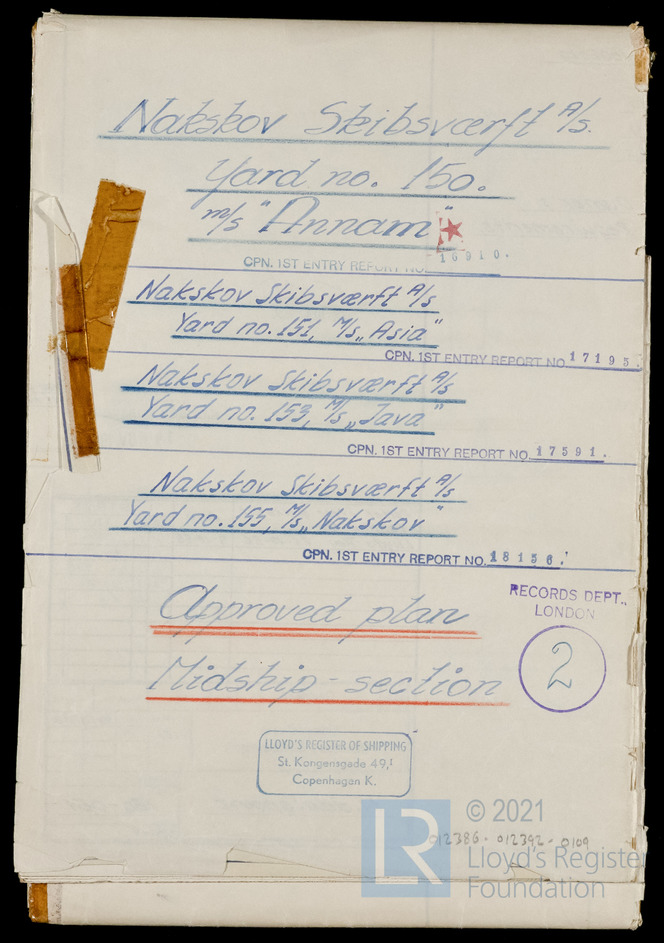 Nakskov Skibsværft A/s.
Yard no. 150.
m/s "Annam"
CPN. 1ST ENTRY REPORT NO. 16910.
Nakskov Skibsværft A/s
Yard no. 151, M/s „Asia"
CPN. 1ST ENTRY REPORT NO. 17195.
Nakskov Skibsværft A/s
Yard no. 153, M/s „Java"
CPN. 1ST ENTRY REPORT NO. 17591.
Nakskov Skibsværft A/s
Yard no. 155, M/s „Nakskov"
CPN. 1ST ENTRY REPORT NO. 18156.
Approved plan
RECORDS DEPT.,
LONDON
2
Midship-section
LLOYD'S REGISTER OF SHIPPING
St. Kongensgade 49,¹
Copenhagen K.
LR
© 2021
012386-012392-0109
Lloyd's Register
Foundation